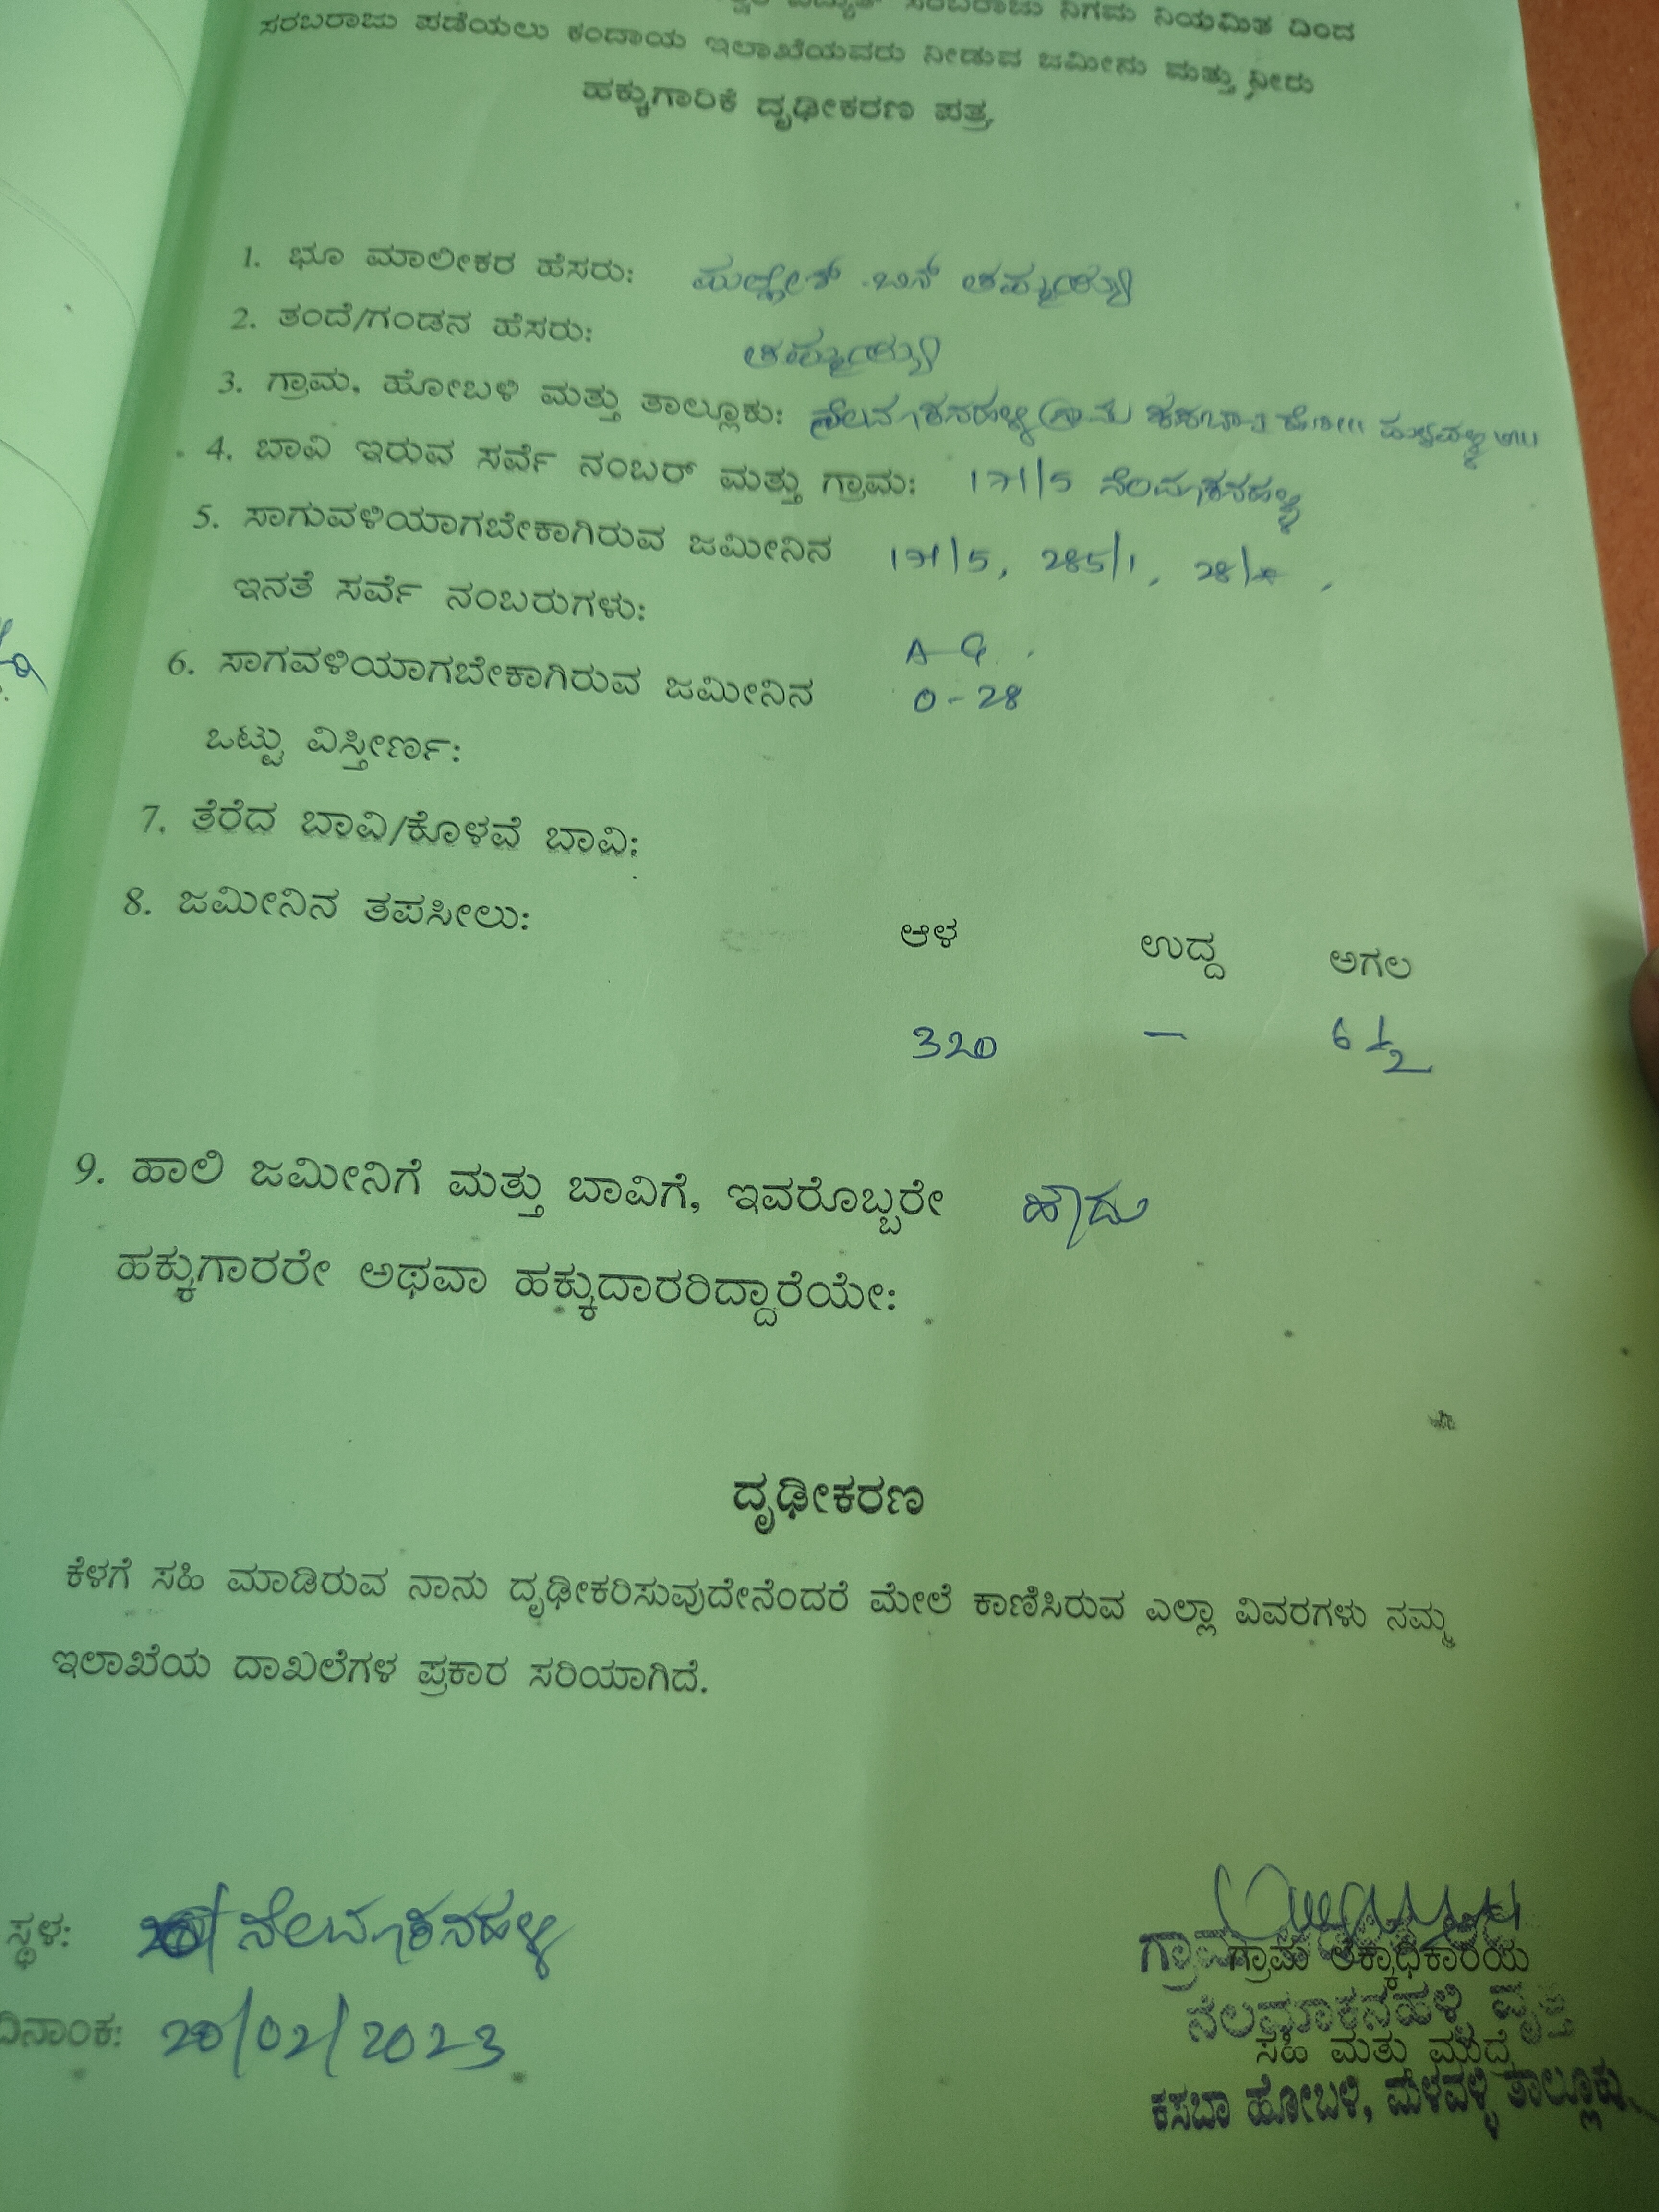 ವಿದ್ಯುತ್ ಸರಬರಾಜು ನಿಗಮ ನಿಯಮಿತ ದಿಂದ
ಸರಬರಾಜು ಪಡೆಯಲು ಕಂದಾಯ ಇಲಾಖೆಯವರು ನೀಡುವ ಜಮೀನು ಮತ್ತು ನೀರು
ಹಕ್ಕುಗಾರಿಕೆ ದೃಢೀಕರಣ ಪತ್ರ
1. ಭೂ ಮಾಲೀಕರ ಹೆಸರು: ಬಿನ್ ತಮ್ಮಯ್ಯ
2. ತಂದೆ/ಗಂಡನ ಹೆಸರು: ತಮ್ಮಯ್ಯ
3. ಗ್ರಾಮ, ಹೋಬಳಿ ಮತ್ತು ತಾಲ್ಲೂಕು: ನೆಲಮಾಕನಹಳ್ಳಿ ಗ್ರಾಮ ಕಸಬಾ
4. ಬಾವಿ ಇರುವ ಸರ್ವೆ ನಂಬರ್ ಮತ್ತು ಗ್ರಾಮ: 171/5 ನೆಲಮಾಕನಹಳ್ಳಿ
5. ಸಾಗುವಳಿಯಾಗಬೇಕಾಗಿರುವ ಜಮೀನಿನ 171/5, 285/1,
ಇನತೆ ಸರ್ವೆ ನಂಬರುಗಳು:
6. ಸಾಗವಳಿಯಾಗಬೇಕಾಗಿರುವ ಜಮೀನಿನ A-G
0-28
ಒಟ್ಟು ವಿಸ್ತೀರ್ಣ:
7. ತೆರೆದ ಬಾವಿ/ಕೊಳವೆ ಬಾವಿ:
8. ಜಮೀನಿನ ತಪಸೀಲು:
ಆಳ ಉದ್ದ ಅಗಲ
320 – 6 1/2
9. ಹಾಲಿ ಜಮೀನಿಗೆ ಮತ್ತು ಬಾವಿಗೆ, ಇವರೊಬ್ಬರೇ ಹೌದು
ಹಕ್ಕುಗಾರರೇ ಅಥವಾ ಹಕ್ಕುದಾರರಿದ್ದಾರೆಯೇ:
ದೃಢೀಕರಣ
ಕೆಳಗೆ ಸಹಿ ಮಾಡಿರುವ ನಾನು ದೃಢೀಕರಿಸುವುದೇನೆಂದರೆ ಮೇಲೆ ಕಾಣಿಸಿರುವ ಎಲ್ಲಾ ವಿವರಗಳು ನಮ್ಮ
ಇಲಾಖೆಯ ದಾಖಲೆಗಳ ಪ್ರಕಾರ ಸರಿಯಾಗಿದೆ.
ಸ್ಥಳ: ನೆಲಮಾಕನಹಳ್ಳಿ
ದಿನಾಂಕ: 20/02/2023
ಗ್ರಾಮ
ಗ್ರಾಮ ಲೆಕ್ಕಾಧಿಕಾರಿಯ
ನೆಲಮಾಕನಹಳ್ಳಿ ವೃತ್ತ
ಸಹಿ ಮತ್ತು ಮುದ್ರೆ
ಕಸಬಾ ಹೋಬಳಿ, ಮಳವಳ್ಳಿ ತಾಲ್ಲೂಕು.